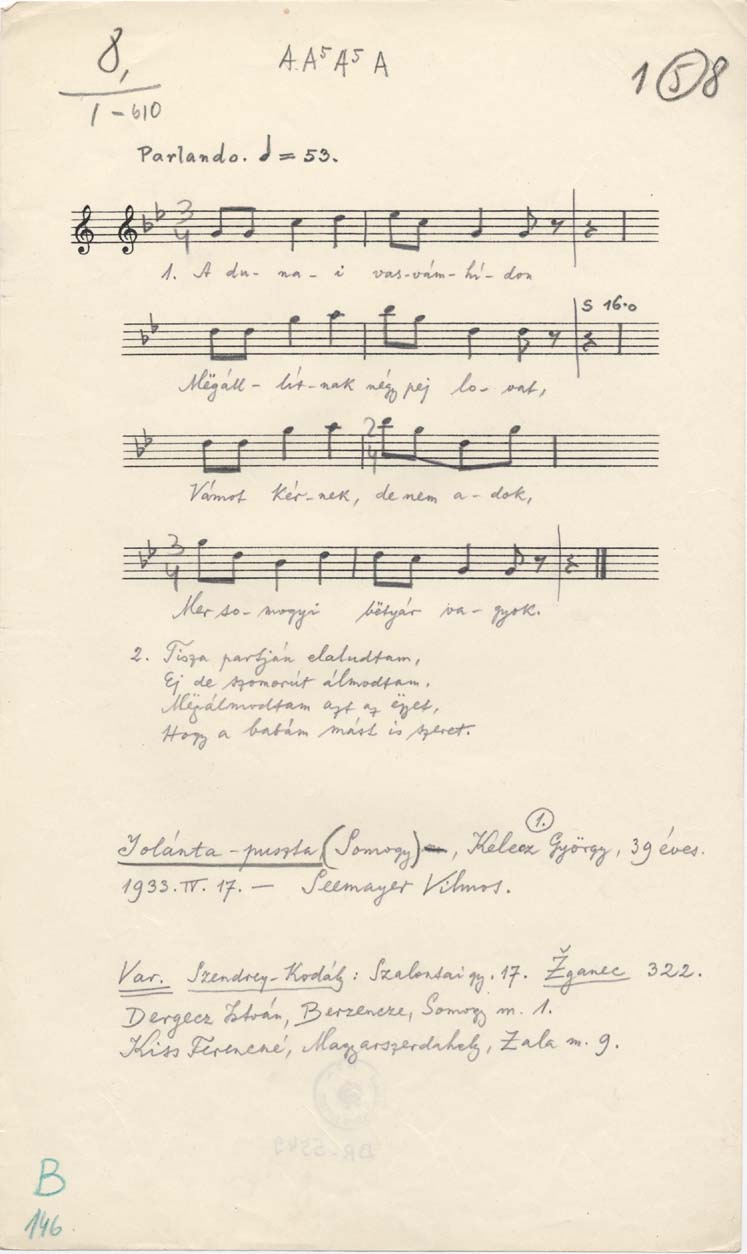 8,
A A⁵ A⁵ A
1 (5) 8
1-610
Parlando. ♩ = 53.
3
4
1. A du-na-i vas-vám-hí-don
5 16.0
Mëgáll-lít-nak négy pej lo-vat,
2
4
Vámot kér-nek, de nem a-dok,
3
4
Mer so-mogyi bëtyár va-gyok.
2. Tisza partján elaludtam,
Ej de szomorút álmodtam.
Mëgálmodtam azt az ëgyet,
Hogy a babám mást is szeret.
1.
Jolánta-puszta, (Somogy), Kelecz György, 39 éves.
1933. IV. 17. — Seemayer Vilmos.
Var. Szendrey-Kodály: Szalontai gy. 17. Žganec 322.
Dergecz István, Berzencze, Somogy m. 1.
Kiss Ferencné, Magyarszerdahely, Zala m. 9.
B
146